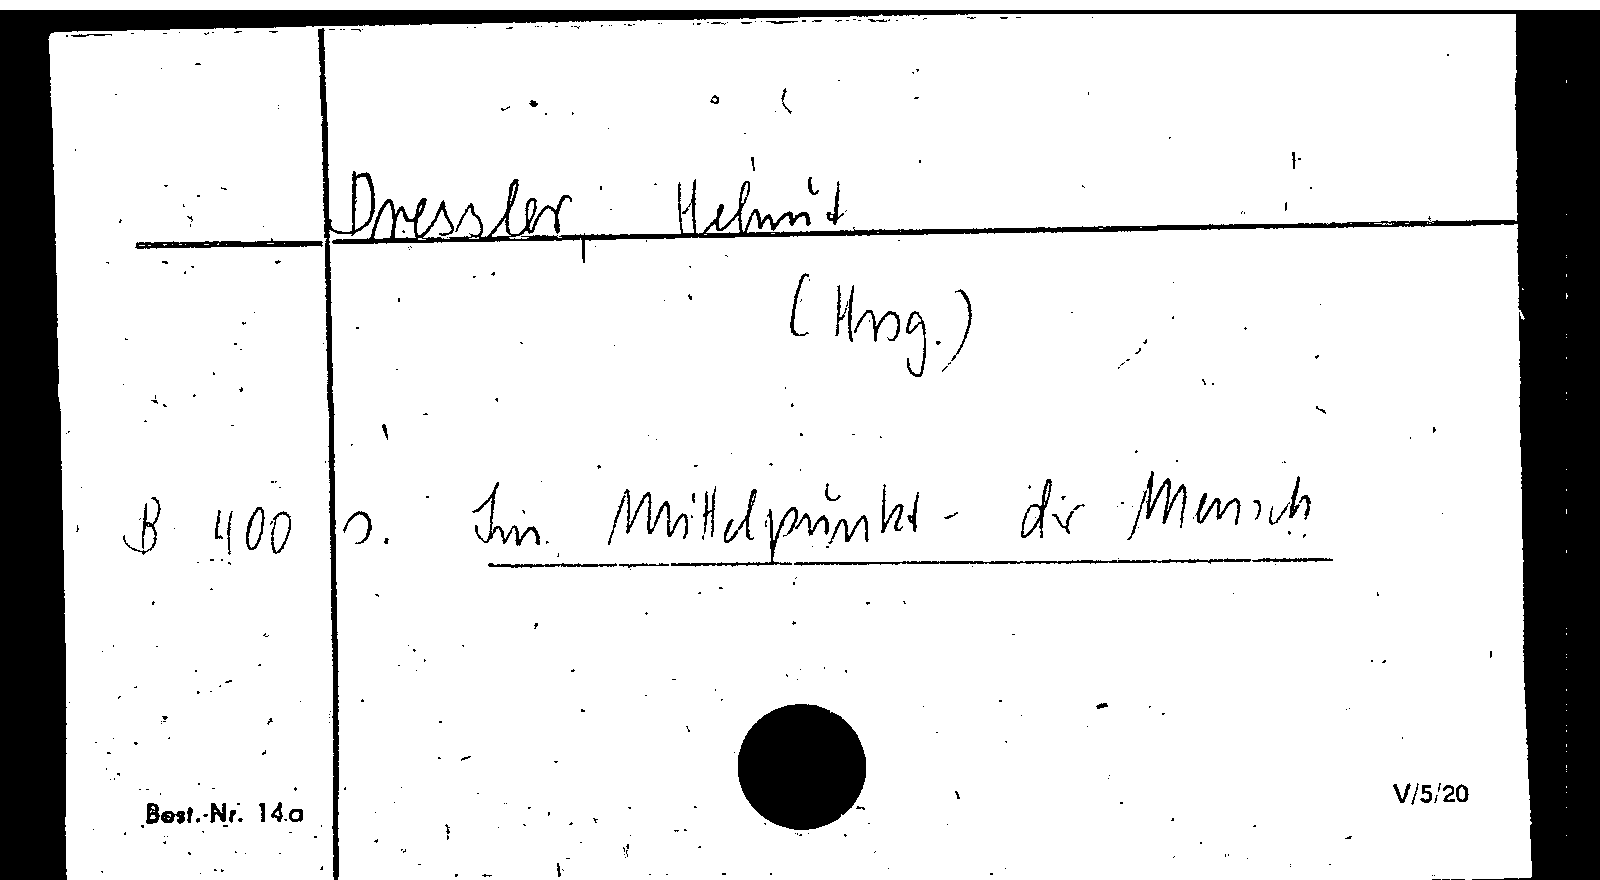 Dressler Helmut
(Hrsg.)
B 400 s. Im Mittelpunkt - der Mensch
Best.-Nr. 14a
V/5/20